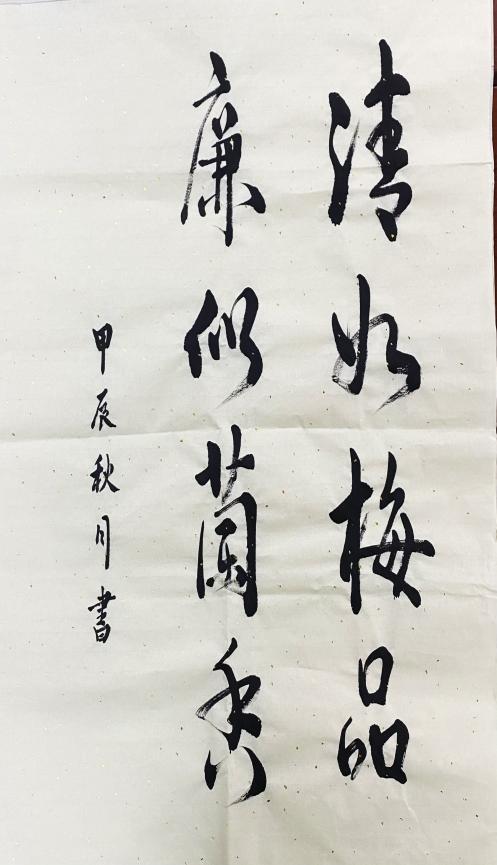 清如梅品
廉似蘭香
甲辰秋月書